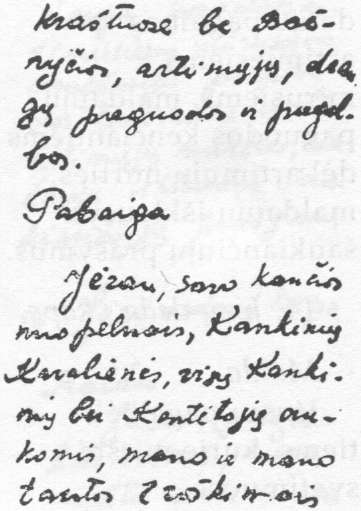 kraštuose be Baž-
nyčios, artimųjų, drau
gų paguodos ir pagal-
bos.
Pabaiga
Jėzau, savo kančios
nuopelnais, Kankinių
Karalienės, visų Kanki-
nių bei Kentėtojų au-
komis, mano ir mano
tautos troškimais